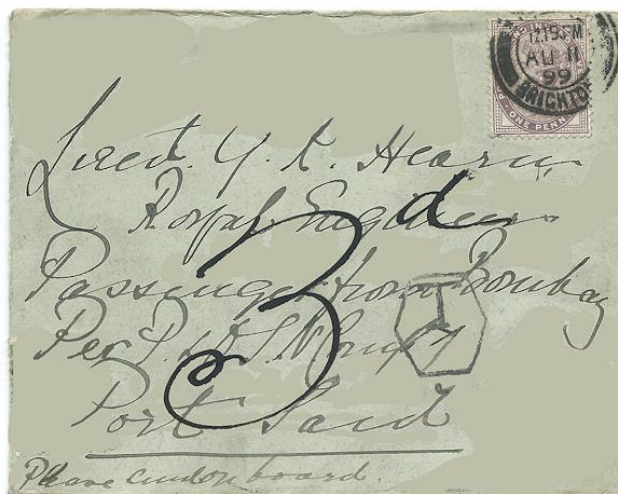 12.15 PM
AU 11
99
BRIGHTON
ONE PENNY
Lieut. Y. K. Hearn
Royal Engineers
3d
Passenger from Bombay
T
Per P. & O. S.
Port Said
Please send on board.